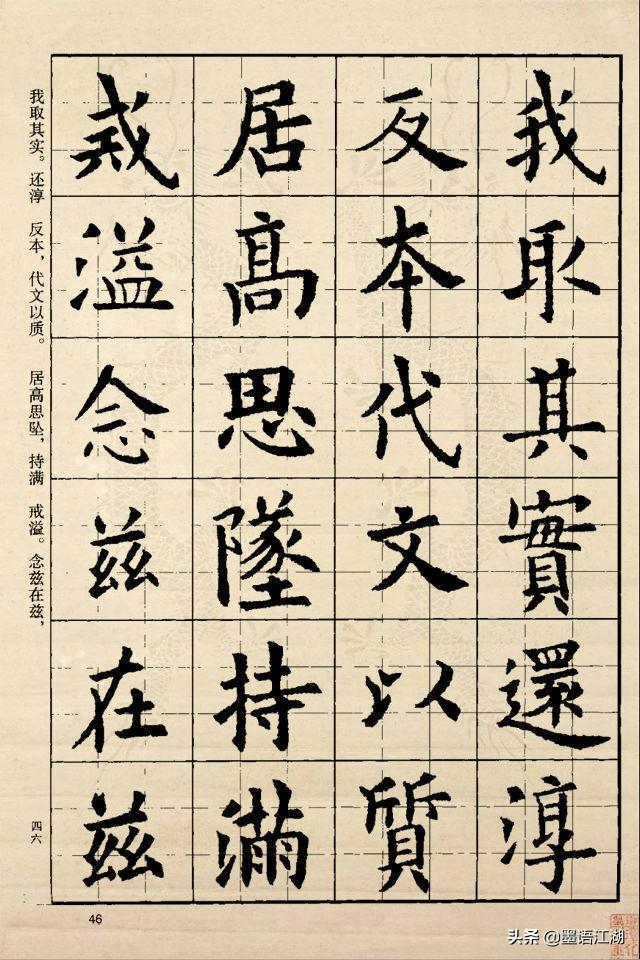 我取其實還淳
反本代文以質
居高思墜持滿
戒溢念兹在兹
我取其实。还淳 反本，代文以质。 居高思坠，持满 戒溢。念兹在兹，
四六
46
头条 @墨语江湖